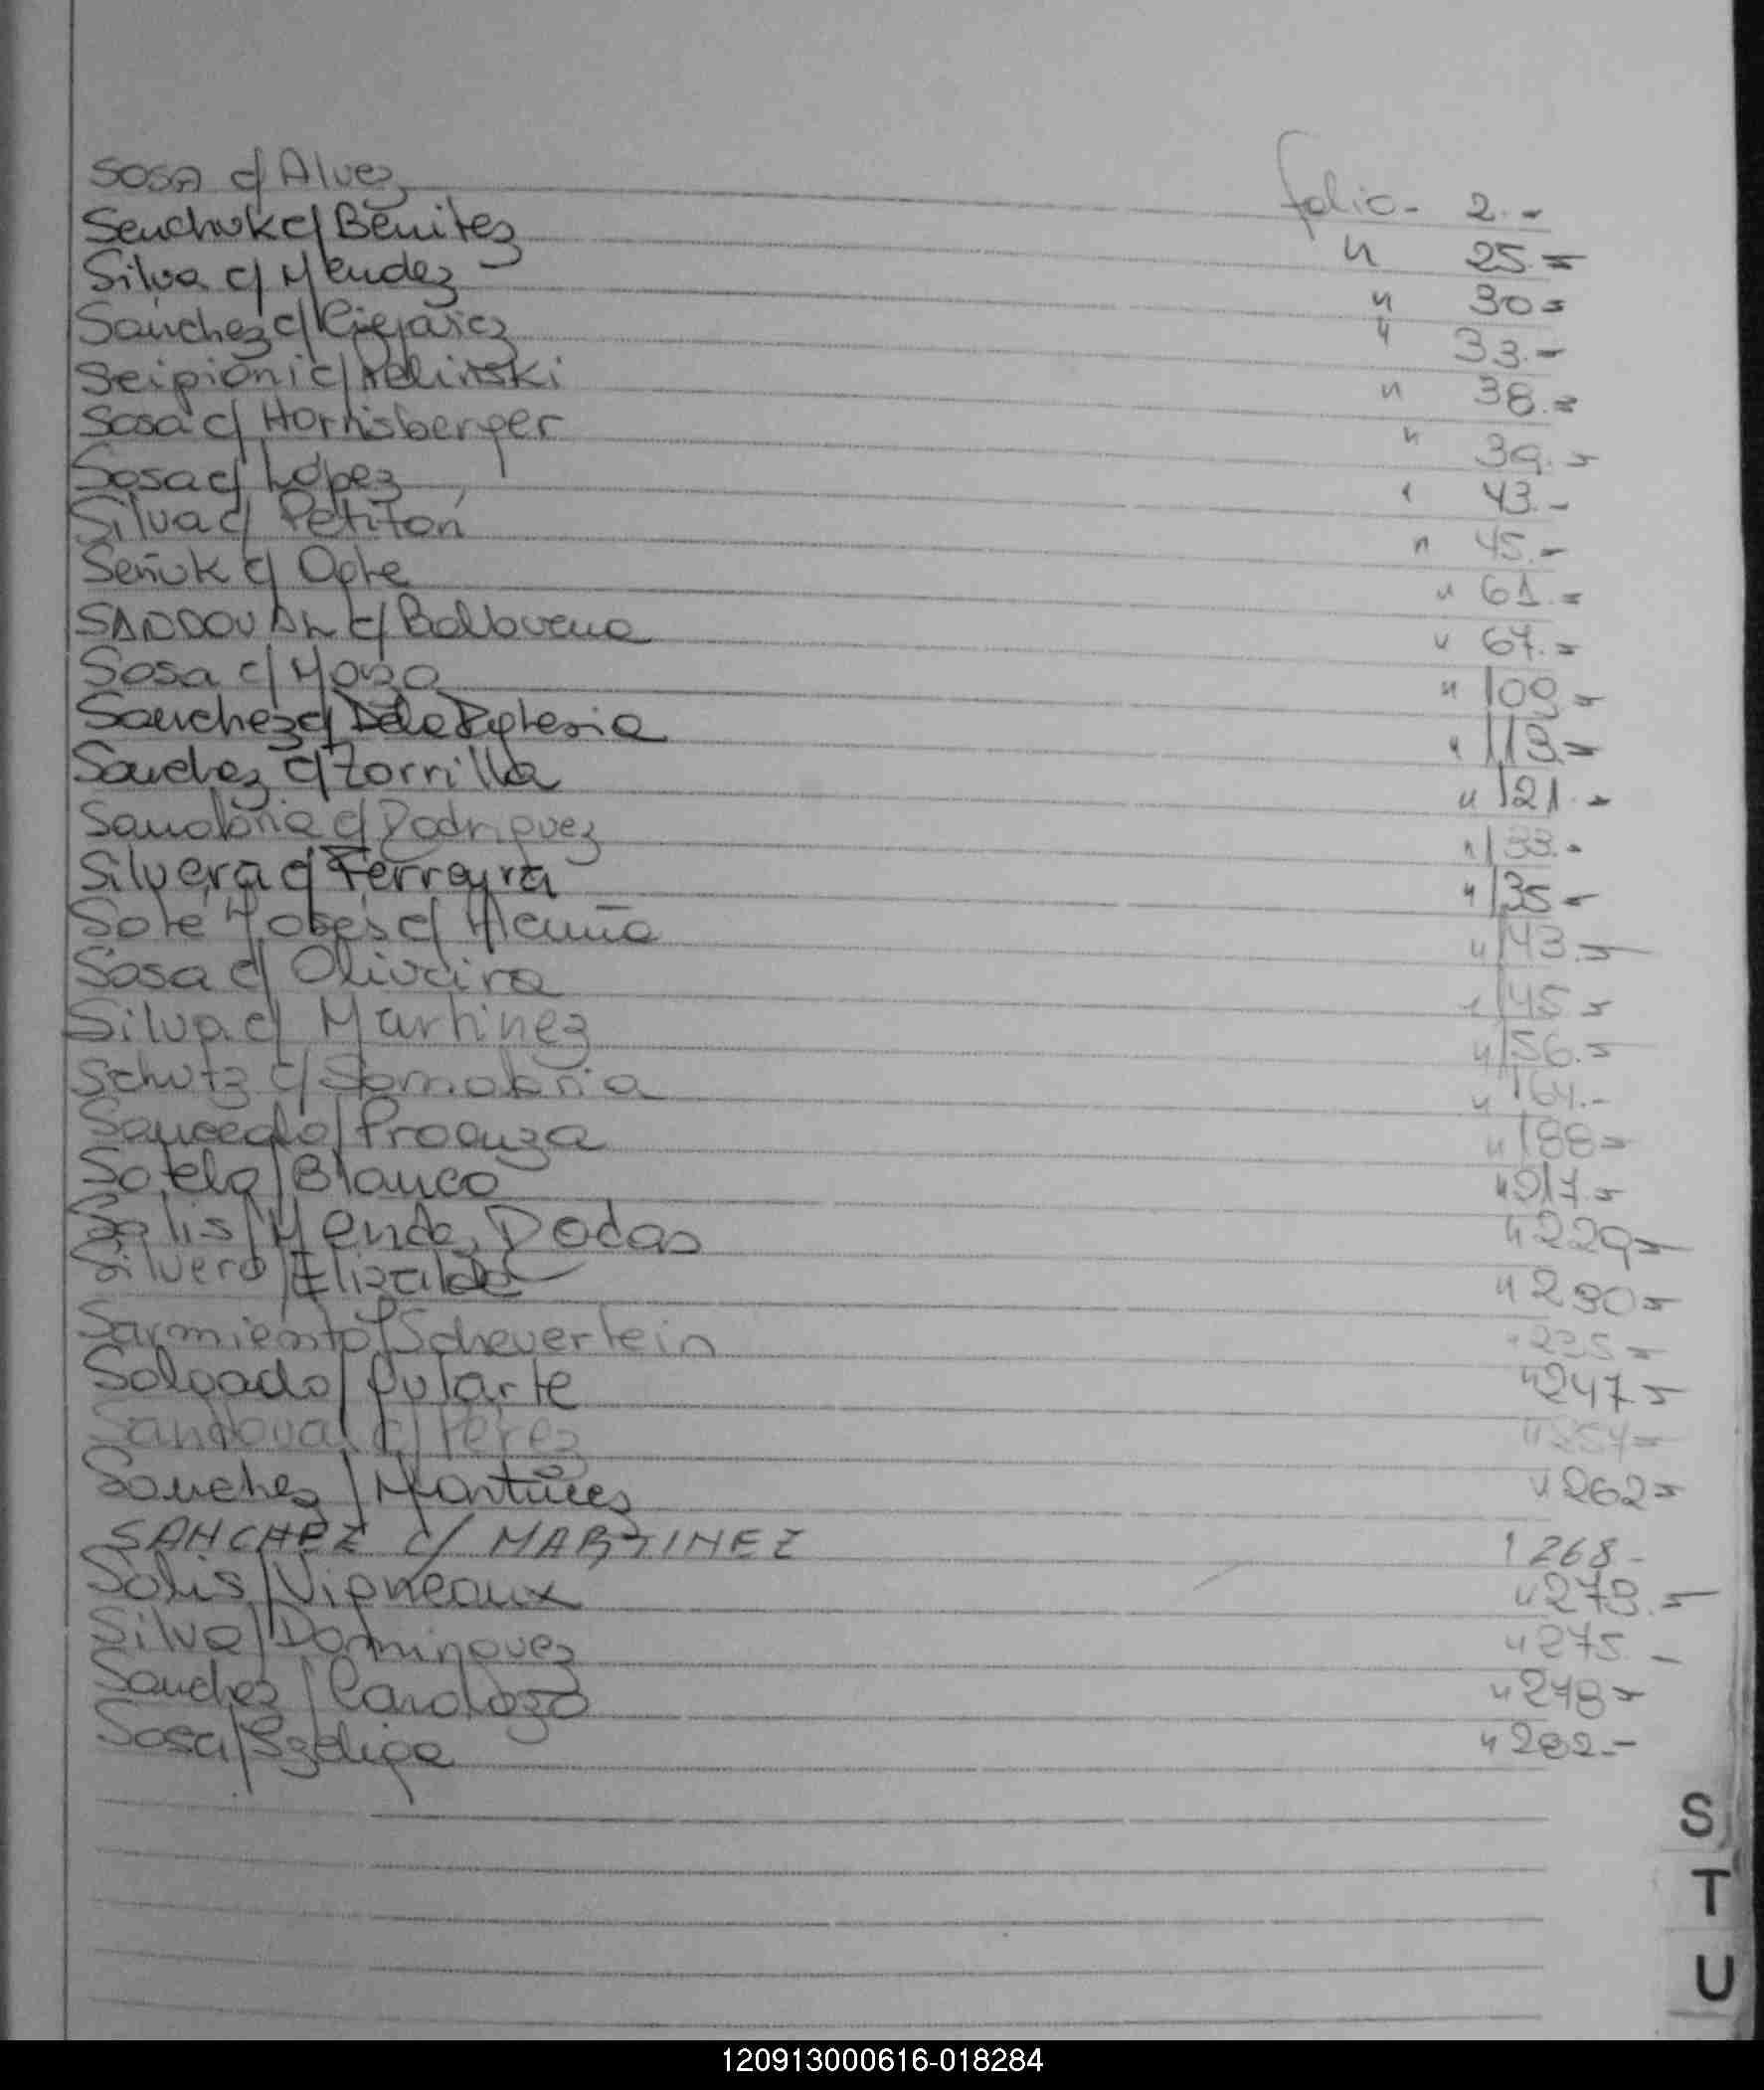 Sosa c/ Alvez folio- 2.-
Senchuk c/ Benitez " 25.=
Silva c/ Mendez " 30=
Sanchez c/ " 33.-
Scipioni c/ Relinski " 38.=
Sosa c/ Hornisberger " 39.-
Sosa c/ López " 43.-
Silva c/ Petiton " 45.-
Señuk c/ Opte " 61.=
SANDOVAL c/ Balbuena " 67.=
Sosa c/ " 109=
Sanchez c/ De la Iglesia " 113=
Sanchez c/ Zorrilla " 121.-
Sanabria c/ Rodriguez " 133.-
Silvera c/ Ferreyra " 135-
Sote c/ Acuña " 143.-
Sosa c/ Oliveira " 145.-
Silva c/ Martinez " 156.-
Schutz c/ Sanabria " 164.-
Saucedo/ " 188=
Sotelo/Blanco " 217.-
Solis/ Rodas " 229=
Silvero/Elizalde " 230=
Sarmiento/Scheuerlein " 235=
Salgado/Pularte " 247.-
Sandoval c/ Perez " 254=
Sanchez/Martinez " 262=
SANCHEZ c/ MARTINEZ " 268-
Solis/Vigneaux " 273.-
Silva/Dominguez " 275.-
Sanchez/Candozo " 278=
Sosa/Szeliga " 282.-
S
T
U
120913000616-018284